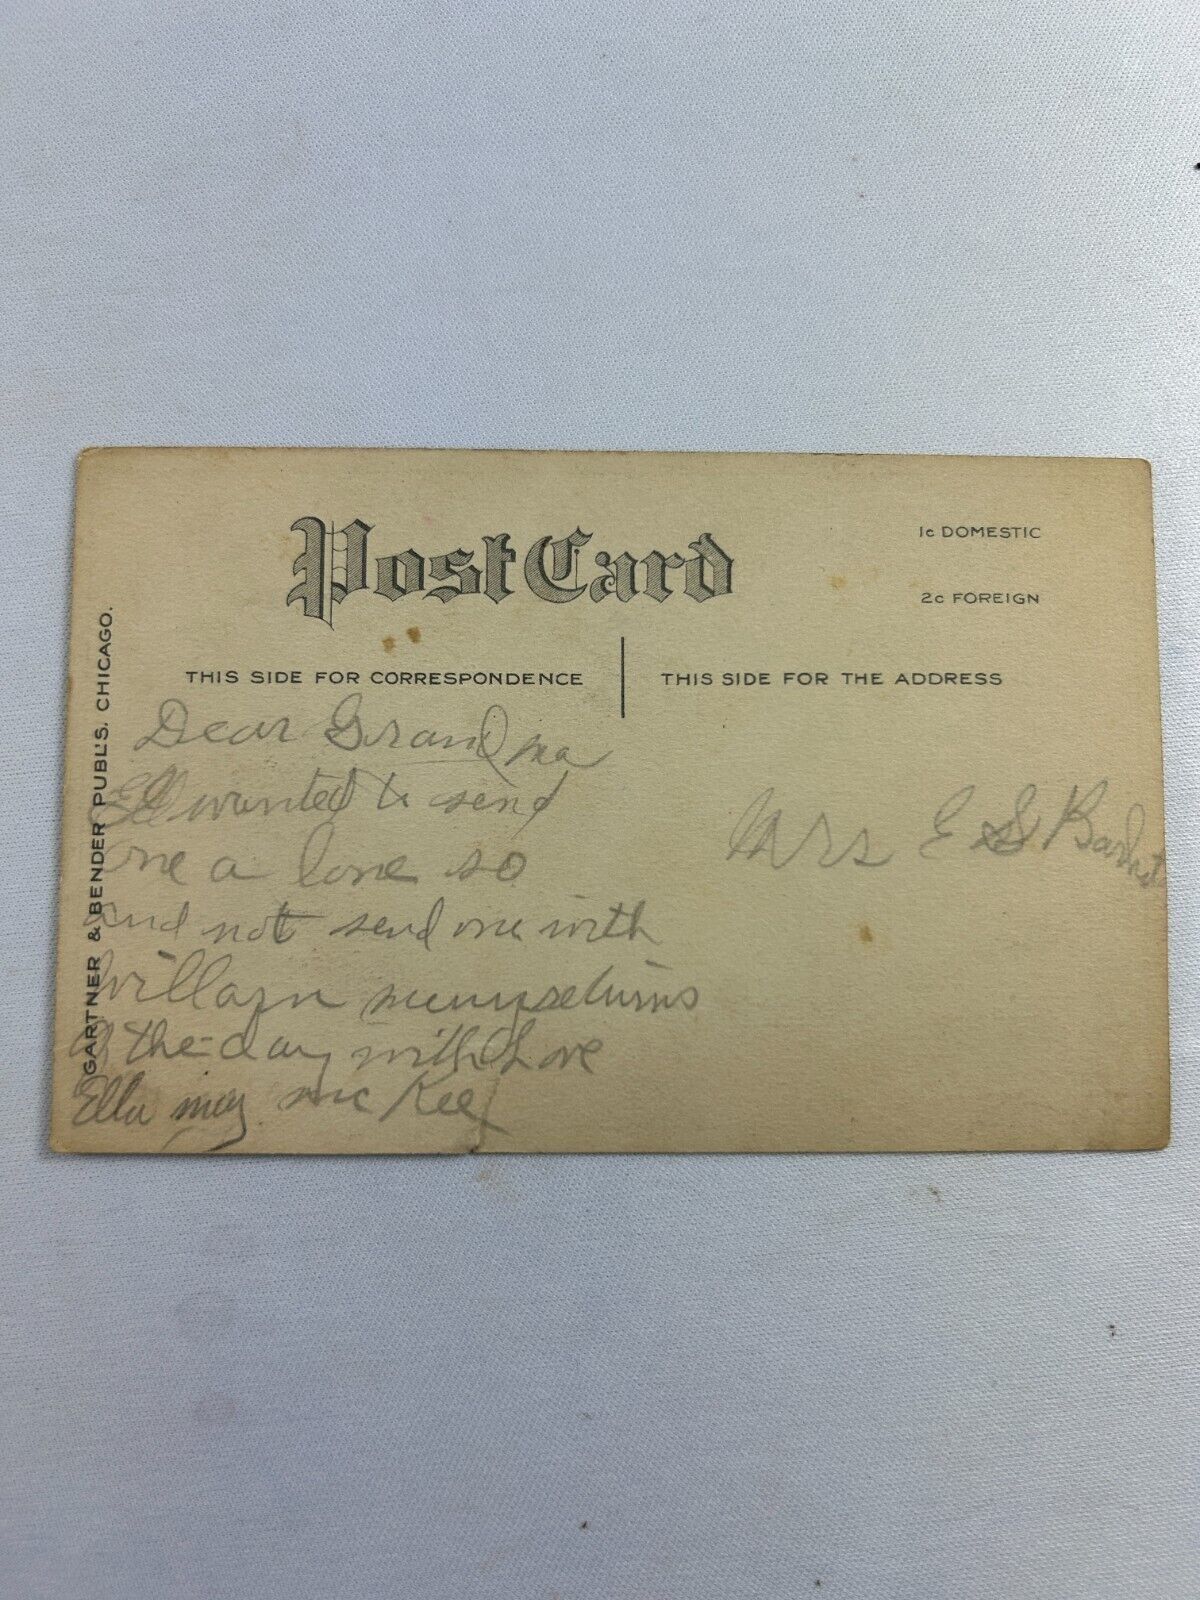 Post Card
1c DOMESTIC
2c FOREIGN
THIS SIDE FOR CORRESPONDENCE
THIS SIDE FOR THE ADDRESS
GARTNER & BENDER PUBL'S. CHICAGO.
Dear Grandma
wanted to send
one a lone so
and not send one with
of the day with Love
Ella may mc Kee
Mrs E S